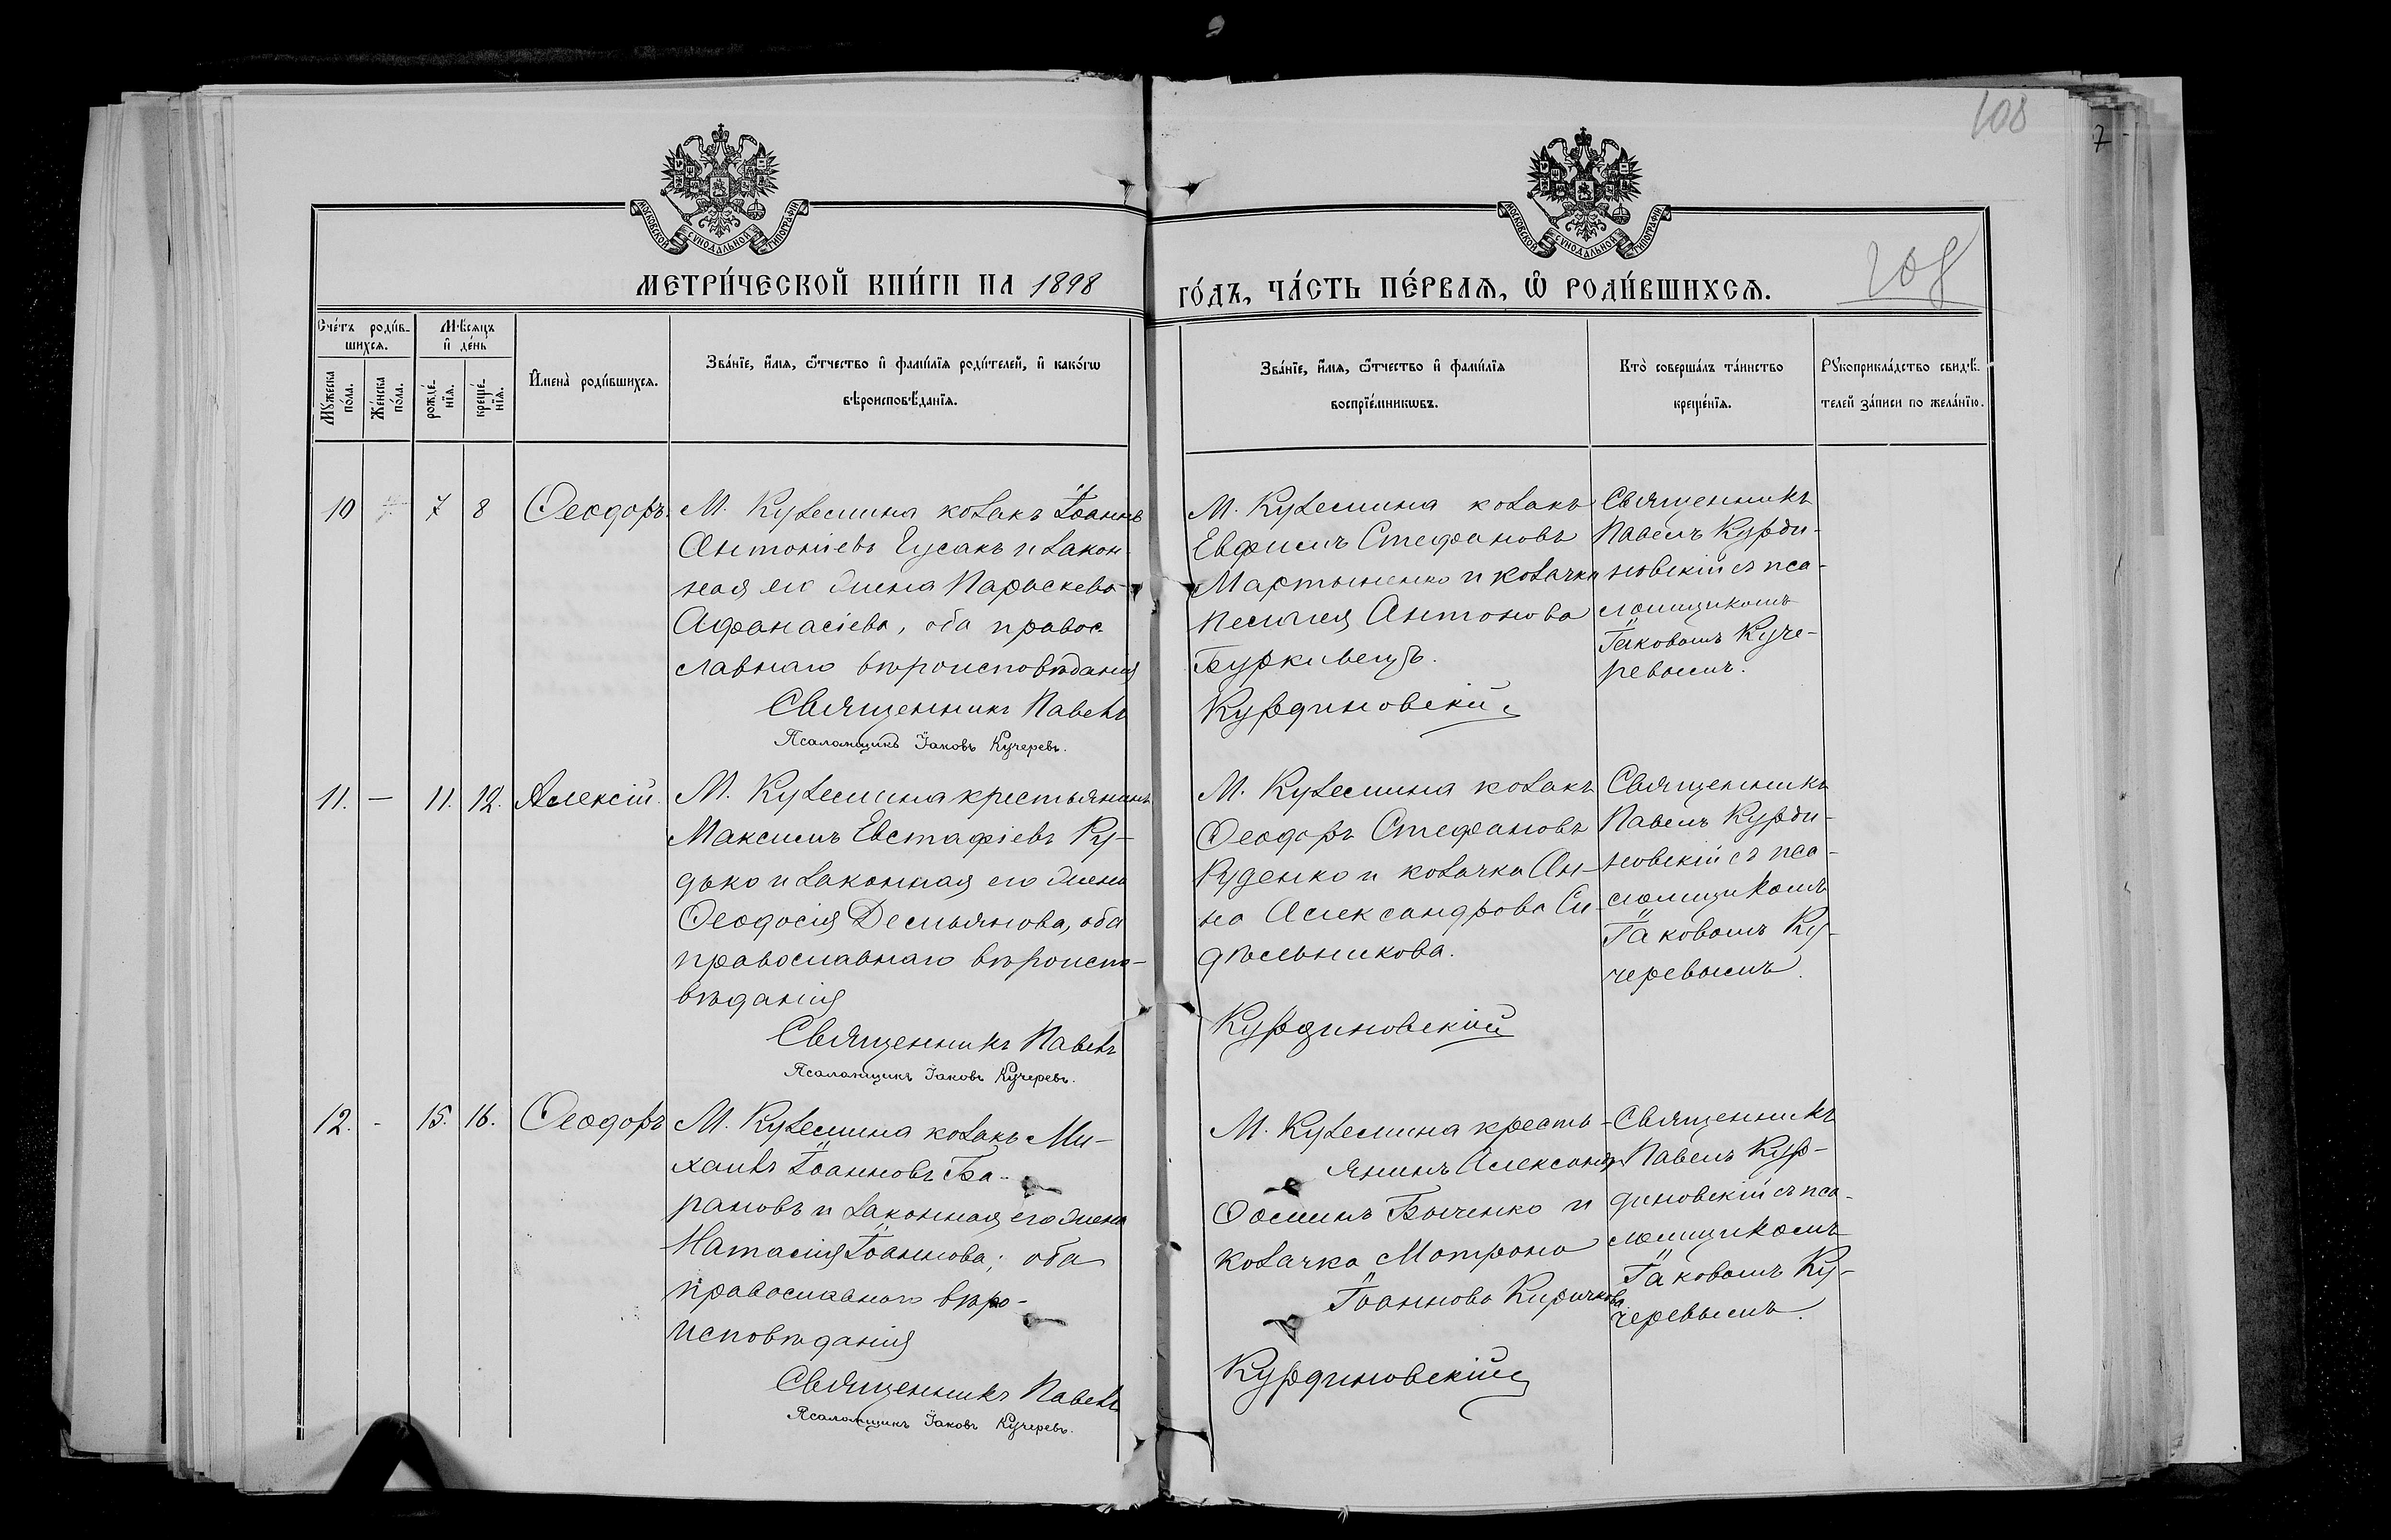 108
7
МОСКОВСКОЙ СѴНОДАЛЬНОЙ ТИПОГРАФІИ
МОСКОВСКОЙ СѴНОДАЛЬНОЙ ТИПОГРАФІИ
МЕТРИ́ЧЕСКОЙ КНИ́ГИ НА 1898
ГО́ДЪ, ЧА́СТЬ ПЕ́РВАѦ, Ѽ РОДИ́ВШИХСѦ.
108
Сче́тъ роди́в-
шихсѧ.
Мѣ́сѧцъ
и҆ де́нь
Мꙋ́жеска
по́ла.
Же́нска
по́ла.
рожде́-
нїѧ.
креще́-
нїѧ.
И҆мена̀ роди́вшихсѧ.
Зва́нїе, и҆́мѧ, ѻ҆́тчество и҆ фами́лїѧ роди́телей, и҆ како́гѡ
вѣроисповѣ́данїѧ.
Зва́нїе, и҆́мѧ, ѻ҆́тчество и҆ фами́лїѧ
воспрїе́мникѡвъ.
Кто̀ соверша́лъ та́инство
креще́нїѧ.
Рꙋкоприкла́дство свидѣ́-
телей за́писи по жела́нїю.
10 7 8 Ѳеодоръ.
М. Куземина козакъ Іоаннъ
Антоніевъ Гусакъ и закон-
ная его жена Параскева
Афанасіева, оба правос-
лавнаго вѣроисповѣданія
Священникъ Павелъ
Псаломщикъ Іаковъ Кучеревъ.
М. Куземина козакъ
Евфимъ Стефановъ
Мартыненко и козачка
Пелагея Антонова
Буркивецъ.
Курдиновскій
Священникъ
Павелъ Курди-
новскій съ пса-
ломщикомъ
Іаковомъ Куче-
ревымъ.
11. — 11. 12. Алексій.
М. Куземина крестьянинъ
Максимъ Евстафіевъ Ру-
дько и законная его жена
Ѳеодосія Демьянова, оба
православнаго вѣроиспо-
вѣданія
Священникъ Павелъ
Псаломщикъ Іаковъ Кучеревъ.
М. Куземина козакъ
Ѳеодоръ Стефановъ
Руденко и козачка Ан-
на Александрова Си-
дѣльникова.
Курдиновскій
Священникъ
Павелъ Курди-
новскій съ пса-
ломщикомъ
Іаковомъ Ку-
черевымъ.
12. - 15. 16. Ѳеодоръ
М. Куземина козакъ Ми-
хаилъ Іоанновъ Ба-
рановъ и законная его жена
Наталія Іоаннова; оба
православнаго вѣро-
исповѣданія
Священникъ Павелъ
Псаломщикъ Іаковъ Кучеревъ.
М. Куземина кресть-
янинъ Александръ
Ѳоминъ Быченко и
козачка Матрона
Іоаннова Киричкова
Курдиновскій
Священникъ
Павелъ Кур-
диновскій съ пса-
ломщикомъ
Іаковомъ Ку-
черевымъ.